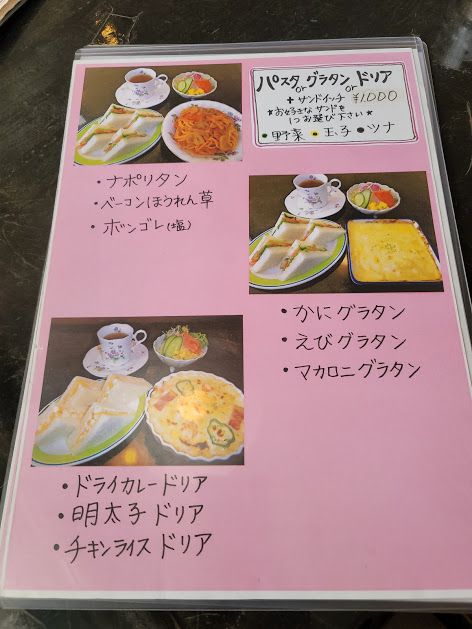 パスタ or グラタン or ドリア
+ サンドイッチ ¥1,000
★お好きなサンドを
1つお選び下さい★
●野菜 ●玉子 ●ツナ
・ナポリタン
・ベーコンほうれん草
・ボンゴレ(塩)
・かにグラタン
・えびグラタン
・マカロニグラタン
・ドライカレードリア
・明太子ドリア
・チキンライスドリア